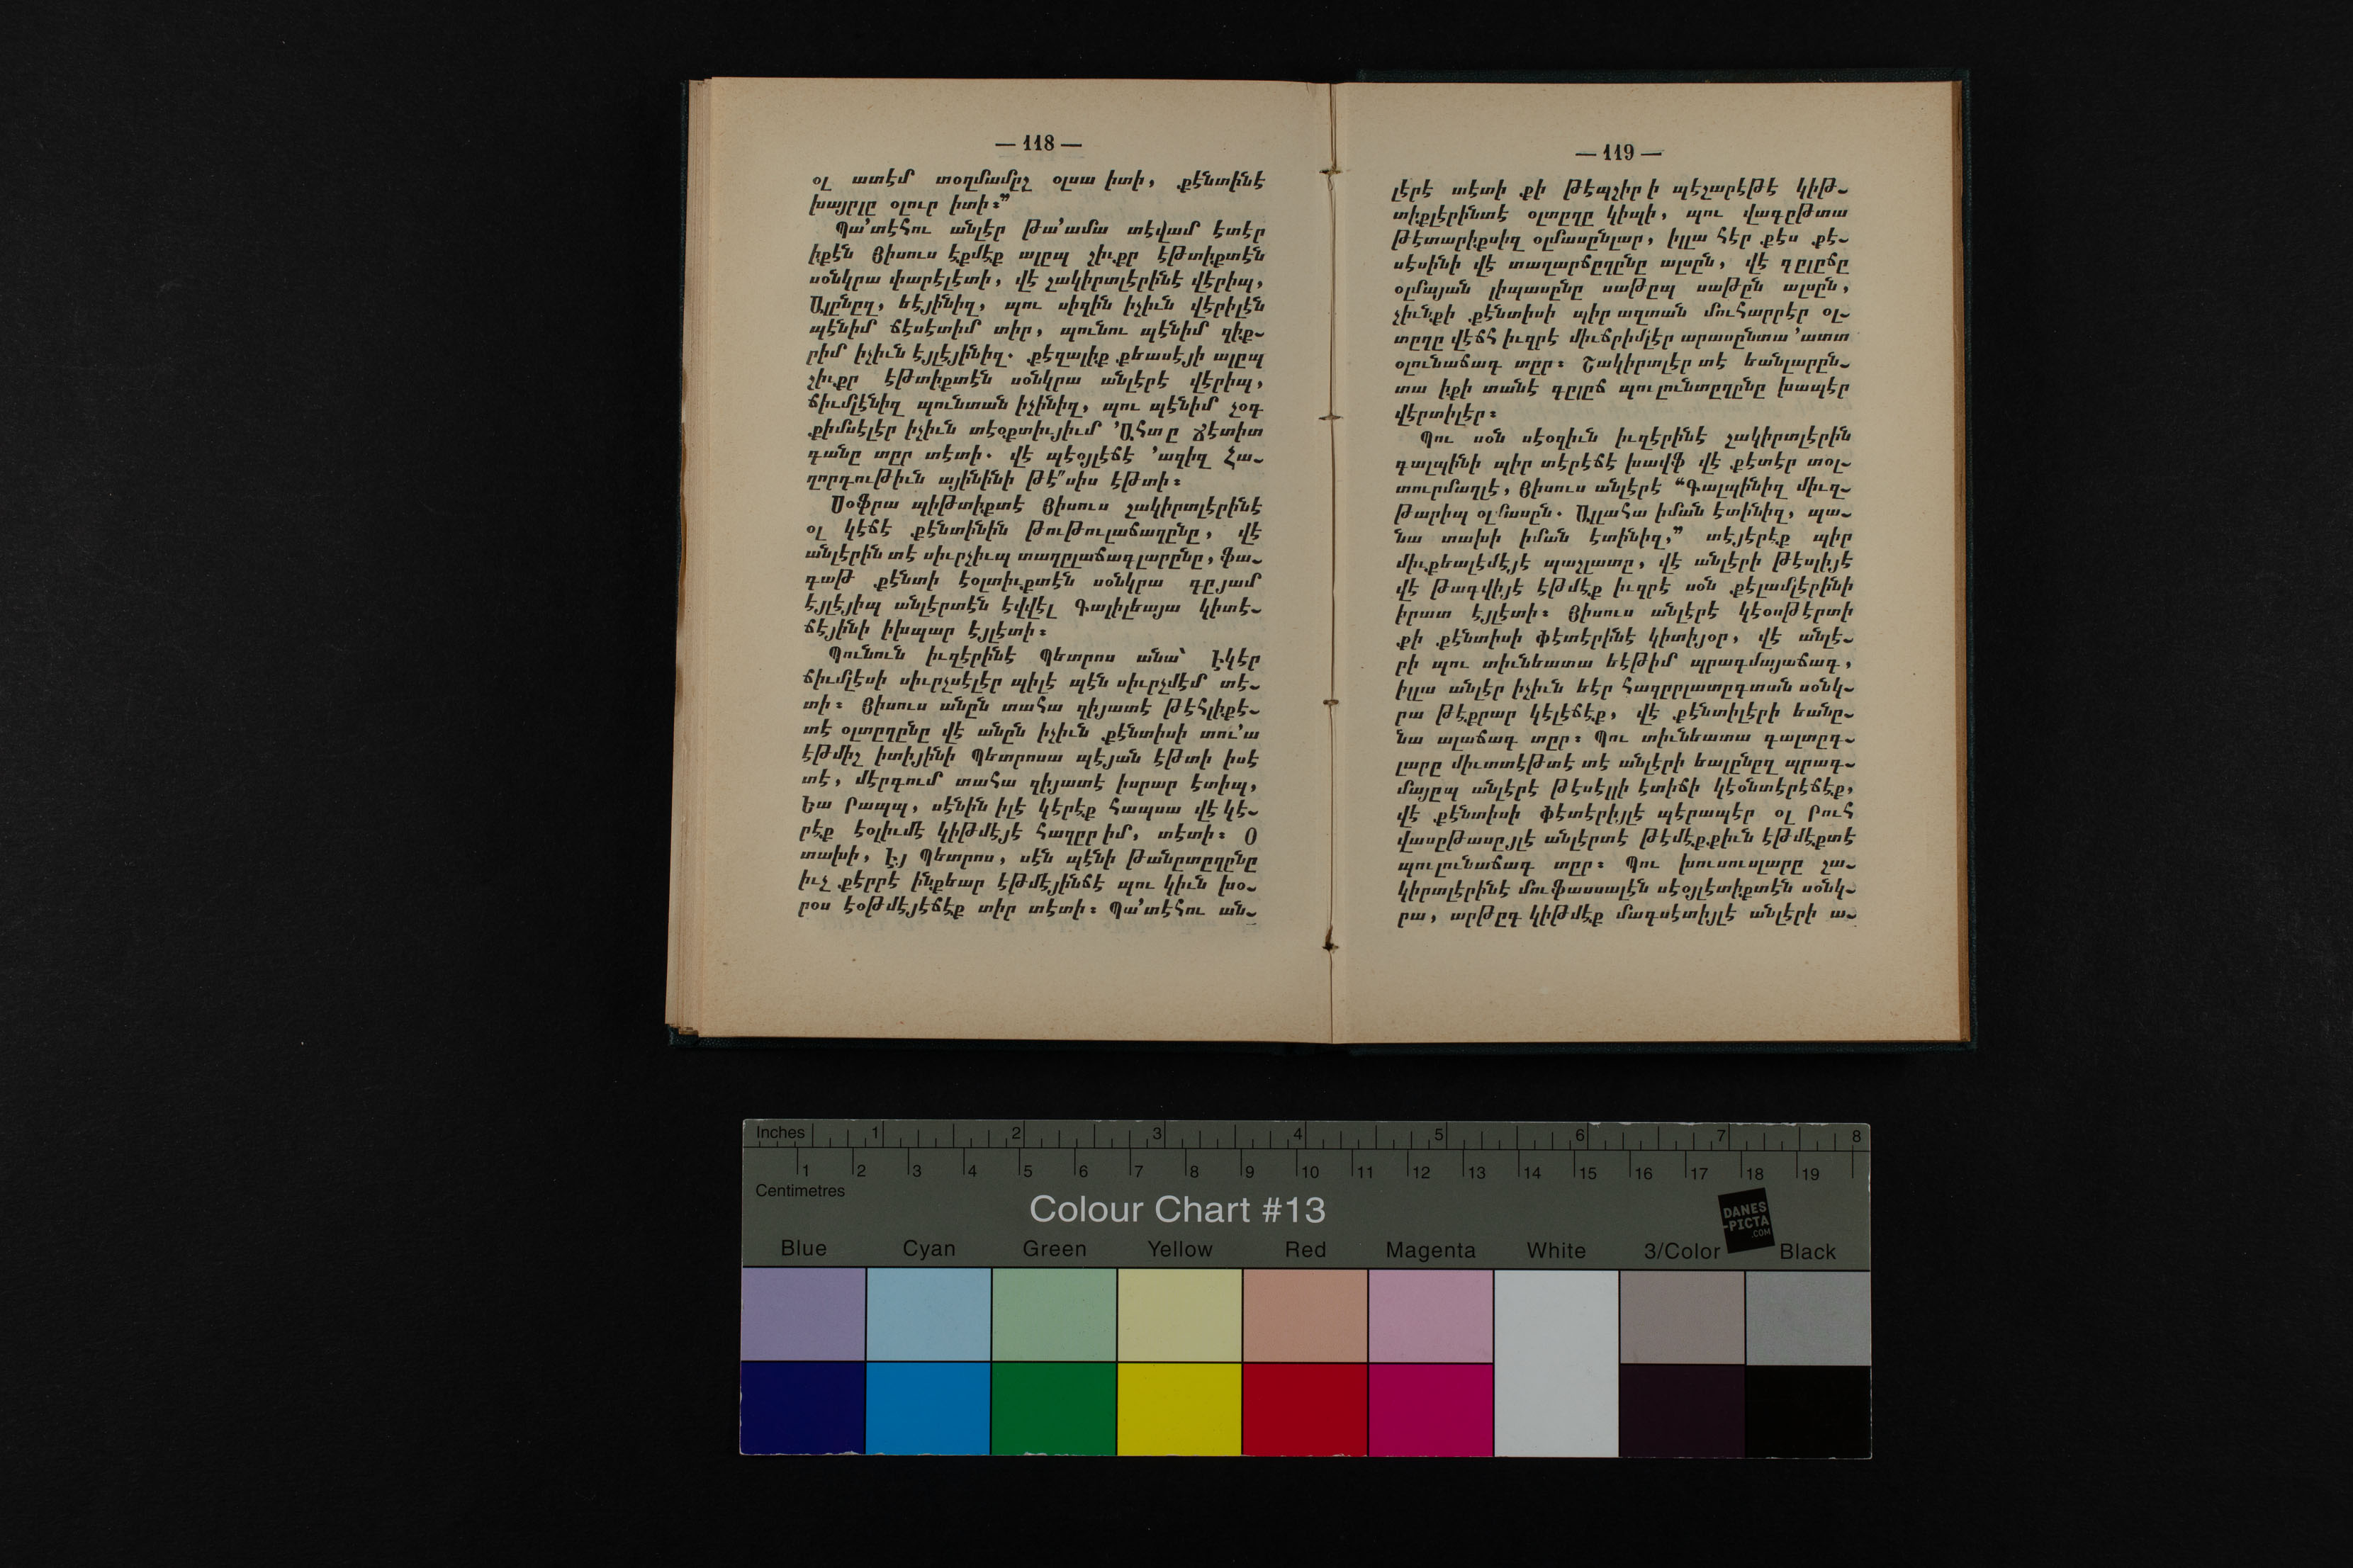 — 118 —
օլ ատէմ տօղմամըշ օլսա իտի, քէնտինէ
խայըլը օլուր իտի։”
Պա՚տէհու անլէր թա՚ամա տէվամ էտէր
իքէն Յիսուս էքմէք ալըպ շիւքր էթտիքտէն
սօնկրա փարէլէտի, վէ շակիրտլէրինէ վէրիպ,
Ալընըզ, եէյինիզ, պու սիզին իչիւն վէրիլէն
պէնիմ ճէսէտիմ տիր, պունու պէնիմ զիք֊
րիմ իչիւն էյլէյինիզ. քէզալիք քեասէյի ալըպ
շիւքր էթտիքտէն սօնկրա անլէրէ վէրիպ,
ճիւմլէնիզ պունտան իչինիզ, պու պէնիմ չօգ
քիմսէլէր իչիւն տէօքտիւյիւմ ՚Ահտ ը Ճէտիտ
գանը տըր տէտի. վէ պէօյլէճէ ՚ազիզ Հա֊
ղորդութիւն այինինի թէ՛՛սիս էթտի։
Սօֆրա պիթտիքտէ Յիսուս շակիրտլէրինէ
օլ կէճէ քէնտինին թութուլաճաղընը, վէ
անլէրին տէ սիւրչիւպ տաղըլաճագլարընը, ֆա֊
գաթ քէնտի էօլտիւքտէն սօնկրա գըյամ
էյլէյիպ անլէրտէն էվվէլ Գալիլեայա կիտէ֊
ճէյինի իխպար էյլէտի։
Պունուն իւզէրինէ Պետրոս անա՝ Էկէր
ճիւմլէսի սիւրչսէլէր պիլէ պէն սիւրչմէմ տէ֊
տի։ Յիսուս անըն տահա զիյատէ թէհլիքէ֊
տէ օլտըղընը վէ անըն իչիւն քէնտիսի տու՚ա
էթմիշ իտիյինի Պետրոսա պէյան էթտի իսէ
տէ, մէրգում տահա զիյատէ իսրար էտիպ,
Եա Րապպ, սէնին իլէ կէրէք հապսա վէ կէ֊
րէք էօլիւմէ կիթմէյէ հազըր իմ, տէտի։ Օ
տախի, Էյ Պետրոս, սէն պէնի թանըտըղընը
իւչ քէրրէ ինքեար էթմէյինճէ պու կիւն խօ֊
րօս էօթմէյէճէք տիր տէտի։ Պա՚տէհու ան֊
— 119 —
լէրէ տէտի քի թէպչիր ի պէշարէթէ կիթ֊
տիքլէրինտէ օլտըղը կիպի, պու վագըթտա
թէտարիքսիզ օլմասընլար, իլլա հէր քէս քէ֊
սէսինի վէ տաղարճըղընը ալսըն, վէ գըլըճը
օլմայան լիպասընը սաթըպ սաթըն ալսըն,
չիւնքի քէնտիսի պիր ազտան մուհարրէր օլ֊
տըղը վէճհ իւզրէ միւճրիմլէր արասընտա ՚ատտ
օլունաճագ տըր։ Շակիրտլէր տէ եանլարըն֊
տա իքի տանէ գըլըճ պուլունտըղընը խապէր
վէրտիլէր։
Պու սօն սէօզիւն իւզէրինէ շակիրտլէրին
գալպինի պիր տէրէճէ խավֆ վէ քէտէր տօլ֊
տուրմաղլէ, Յիսուս անլէրէ “Գալպինիզ միւզ֊
թարիպ օլմասըն. Ալլահա իման էտինիզ, պա֊
նա տախի իման էտինիզ,” տէյէրէք պիր
միւքեալէմէյէ պաշլատը, վէ անլէրի թէսլիյէ
վէ թագվիյէ էթմէք իւզրէ սօն քէլամլէրինի
իրատ էյլէտի։ Յիսուս անլէրէ կէօսթէրտի
քի քէնտիսի ֆէտէրինէ կիտիյօր, վէ անլէ֊
րի պու տիւնեատա եէթիմ պրագմայաճագ,
իլլա անլէր իչիւն եէր հազըրլատըգտան սօնկ֊
րա թէքրար կէլէճէք, վէ քէնտիլէրի եանը֊
նա ալաճագ տըր։ Պու տիւնեատա գալտըգ֊
լարը միւտտէթտէ տէ անլէրի եալընըզ պրագ֊
մայըպ անլէրէ թէսէլլի էտիճի կէօնտէրէճէք,
վէ քէնտիսի ֆէտէրիյլէ պէրապէր օլ Րուհ
վասըթասըյլէ անլէրտէ թէմէքքիւն էթմէքտէ
պուլունաճագ տըր։ Պու խուսուսլարը շա֊
կիրտլէրինէ մուֆասսալէն սէօյլէտիքտէն սօնկ֊
րա, արթըգ կիթմէք մագսէտիյլէ անլէրի ա֊
Inches 1 2 3 4 5 6 7 8
1 2 3 4 5 6 7 8 9 10 11 12 13 14 15 16 17 18 19
Centimetres
Colour Chart #13
DANES
-PICTA
.COM
Blue Cyan Green Yellow Red Magenta White 3/Color Black